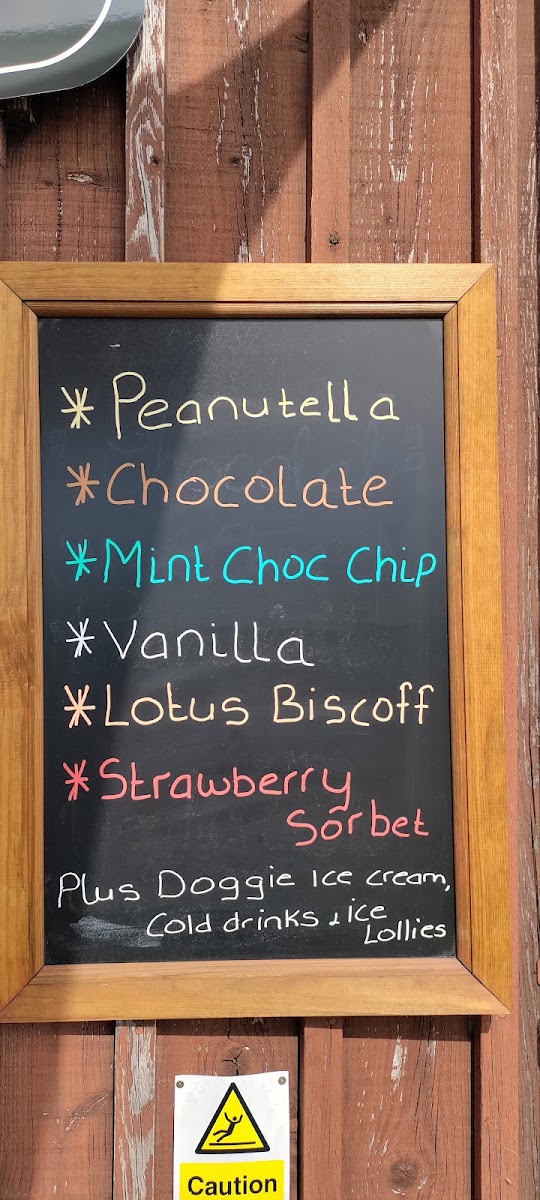 * Peanutella
* Chocolate
* Mint Choc Chip
* Vanilla
* Lotus Biscoff
* Strawberry
Sorbet
Plus Doggie Ice cream,
Cold drinks & ice
Lollies
Caution